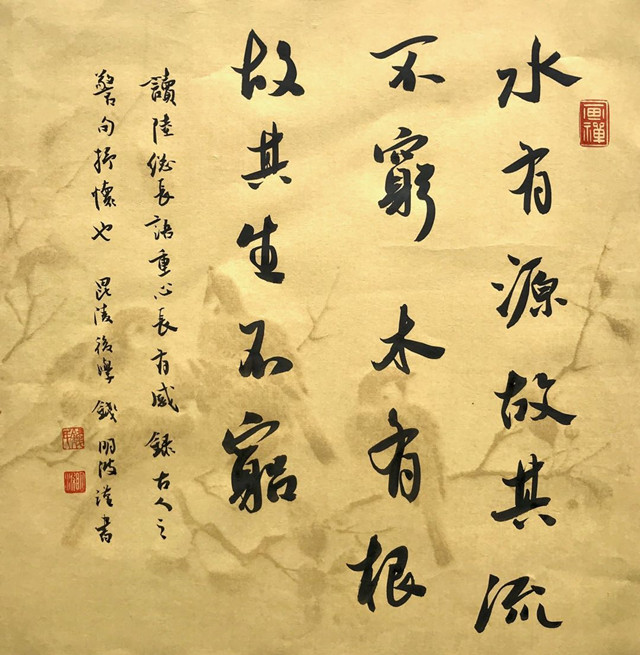 画禪
水有源故其流
不窮木有根
故其生不窮
讀陸總長語重心長有感錄古人之
警句抒懷也 毘陵後學錢明波謹書